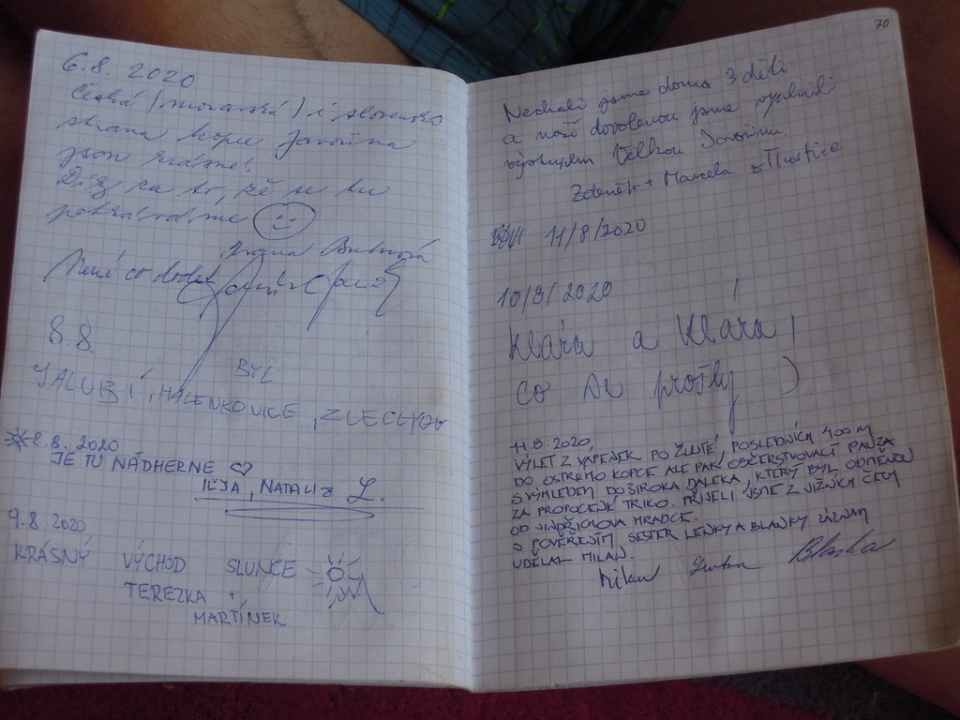 6.8. 2020
česká (moravská) i slovenská
strana kopce Javořina
jsou krásné!
Díky za to, že se tu
Není co dodat
8.8.
BYL
JALUBÍ, HALENKOVICE, ZLECHOV
8.8. 2020
JE TU NÁDHERNE ♡
ILJA, NATALI
9.8. 2020
KRÁSNÝ VÝCHOD SLUNCE
TEREZKA +
MARTÍNEK
70
Nechali jsme doma 3 děti
a naší dovolenou jsme
výstupem Velkou Javořinu.
Zdeněk + Marcela z
11/8/2020
10/8/2020
Klára a Klára!
co se prošly )
11.8.2020,
VÝLET Z VÁPENEK PO ŽLUTÉ, POSLEDNÍCH 400 m
DO OSTRÉHO KOPCE ALE PAK OBČERSTVOVACÍ PAUZA
S VÝHLEDEM DO ŠIROKA DALEKA, KTERÝ BYL ODMĚNOU
ZA PROPOCENÉ TRIKO. PŘIJELI JSME Z JIŽNÍCH ČECH
OD JINDŘICHOVA HRADCE.
S POVĚŘENÍM SESTER LENKY A BLANKY ZÁZNAM
UDĚLAL MILAN.
Milan Lenka Blanka